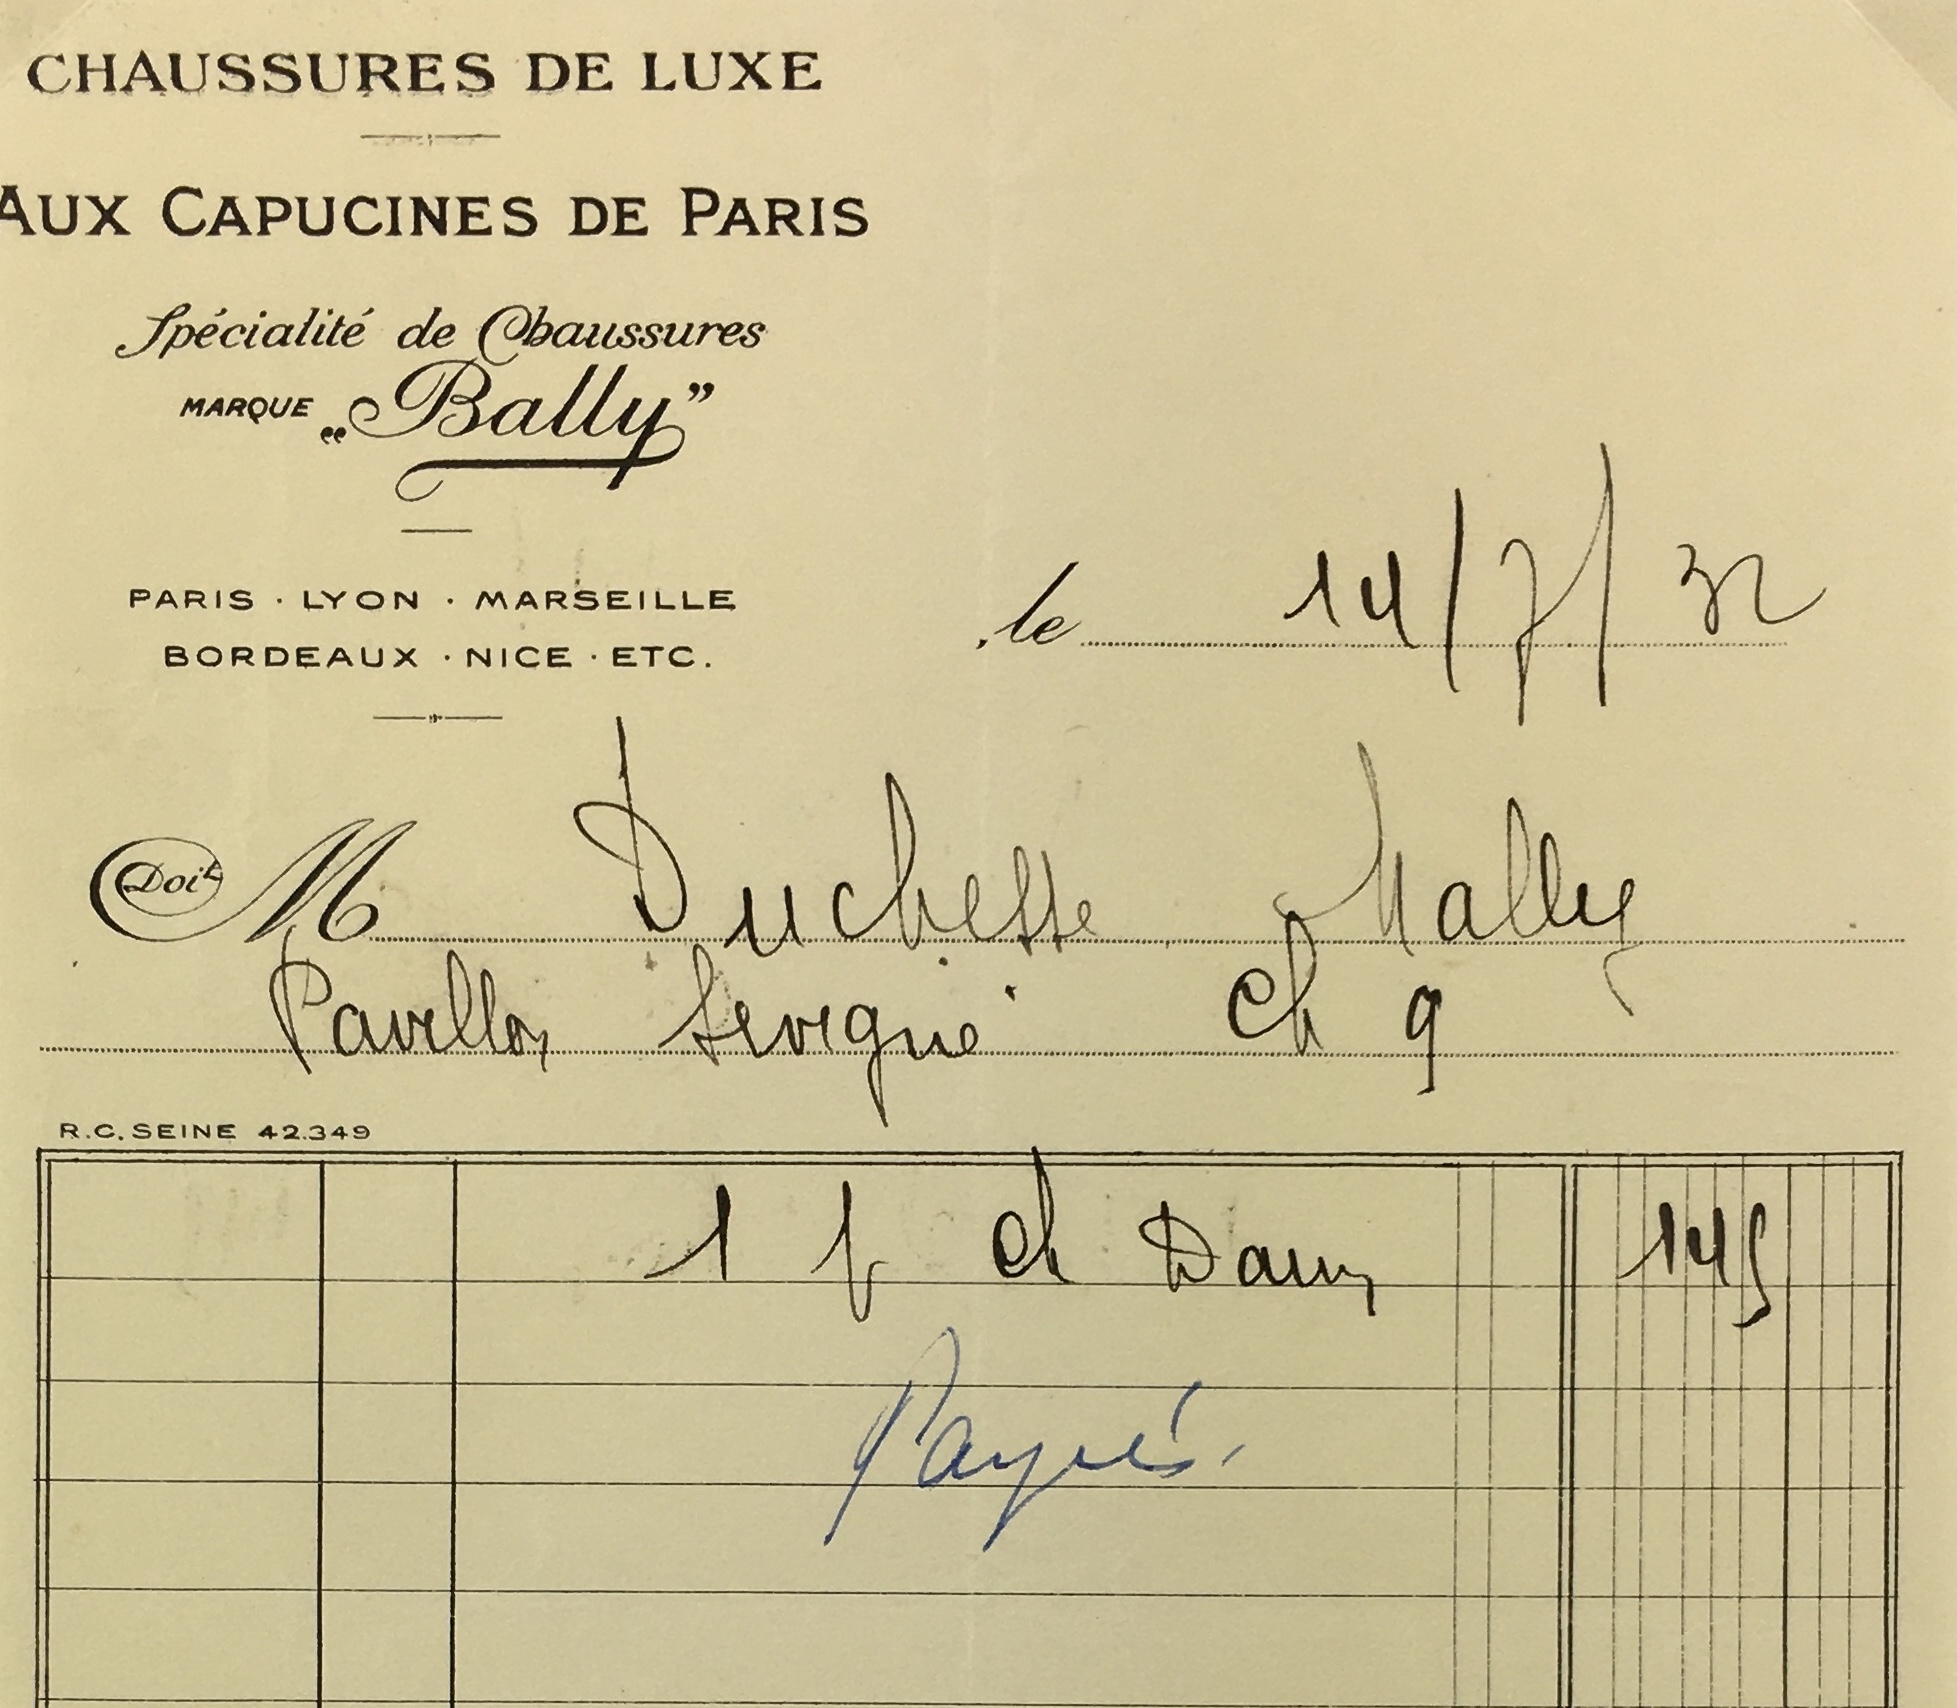 CHAUSSURES DE LUXE
AUX CAPUCINES DE PARIS
Spécialité de Chaussures
MARQUE „Bally”
PARIS · LYON · MARSEILLE
BORDEAUX · NICE · ETC.
, le 14/7/32
Doit M Duchesse Mally
Pavillon Sevigné ch 9
R.C. SEINE 42.349
1 p ch Dam 145
Payés